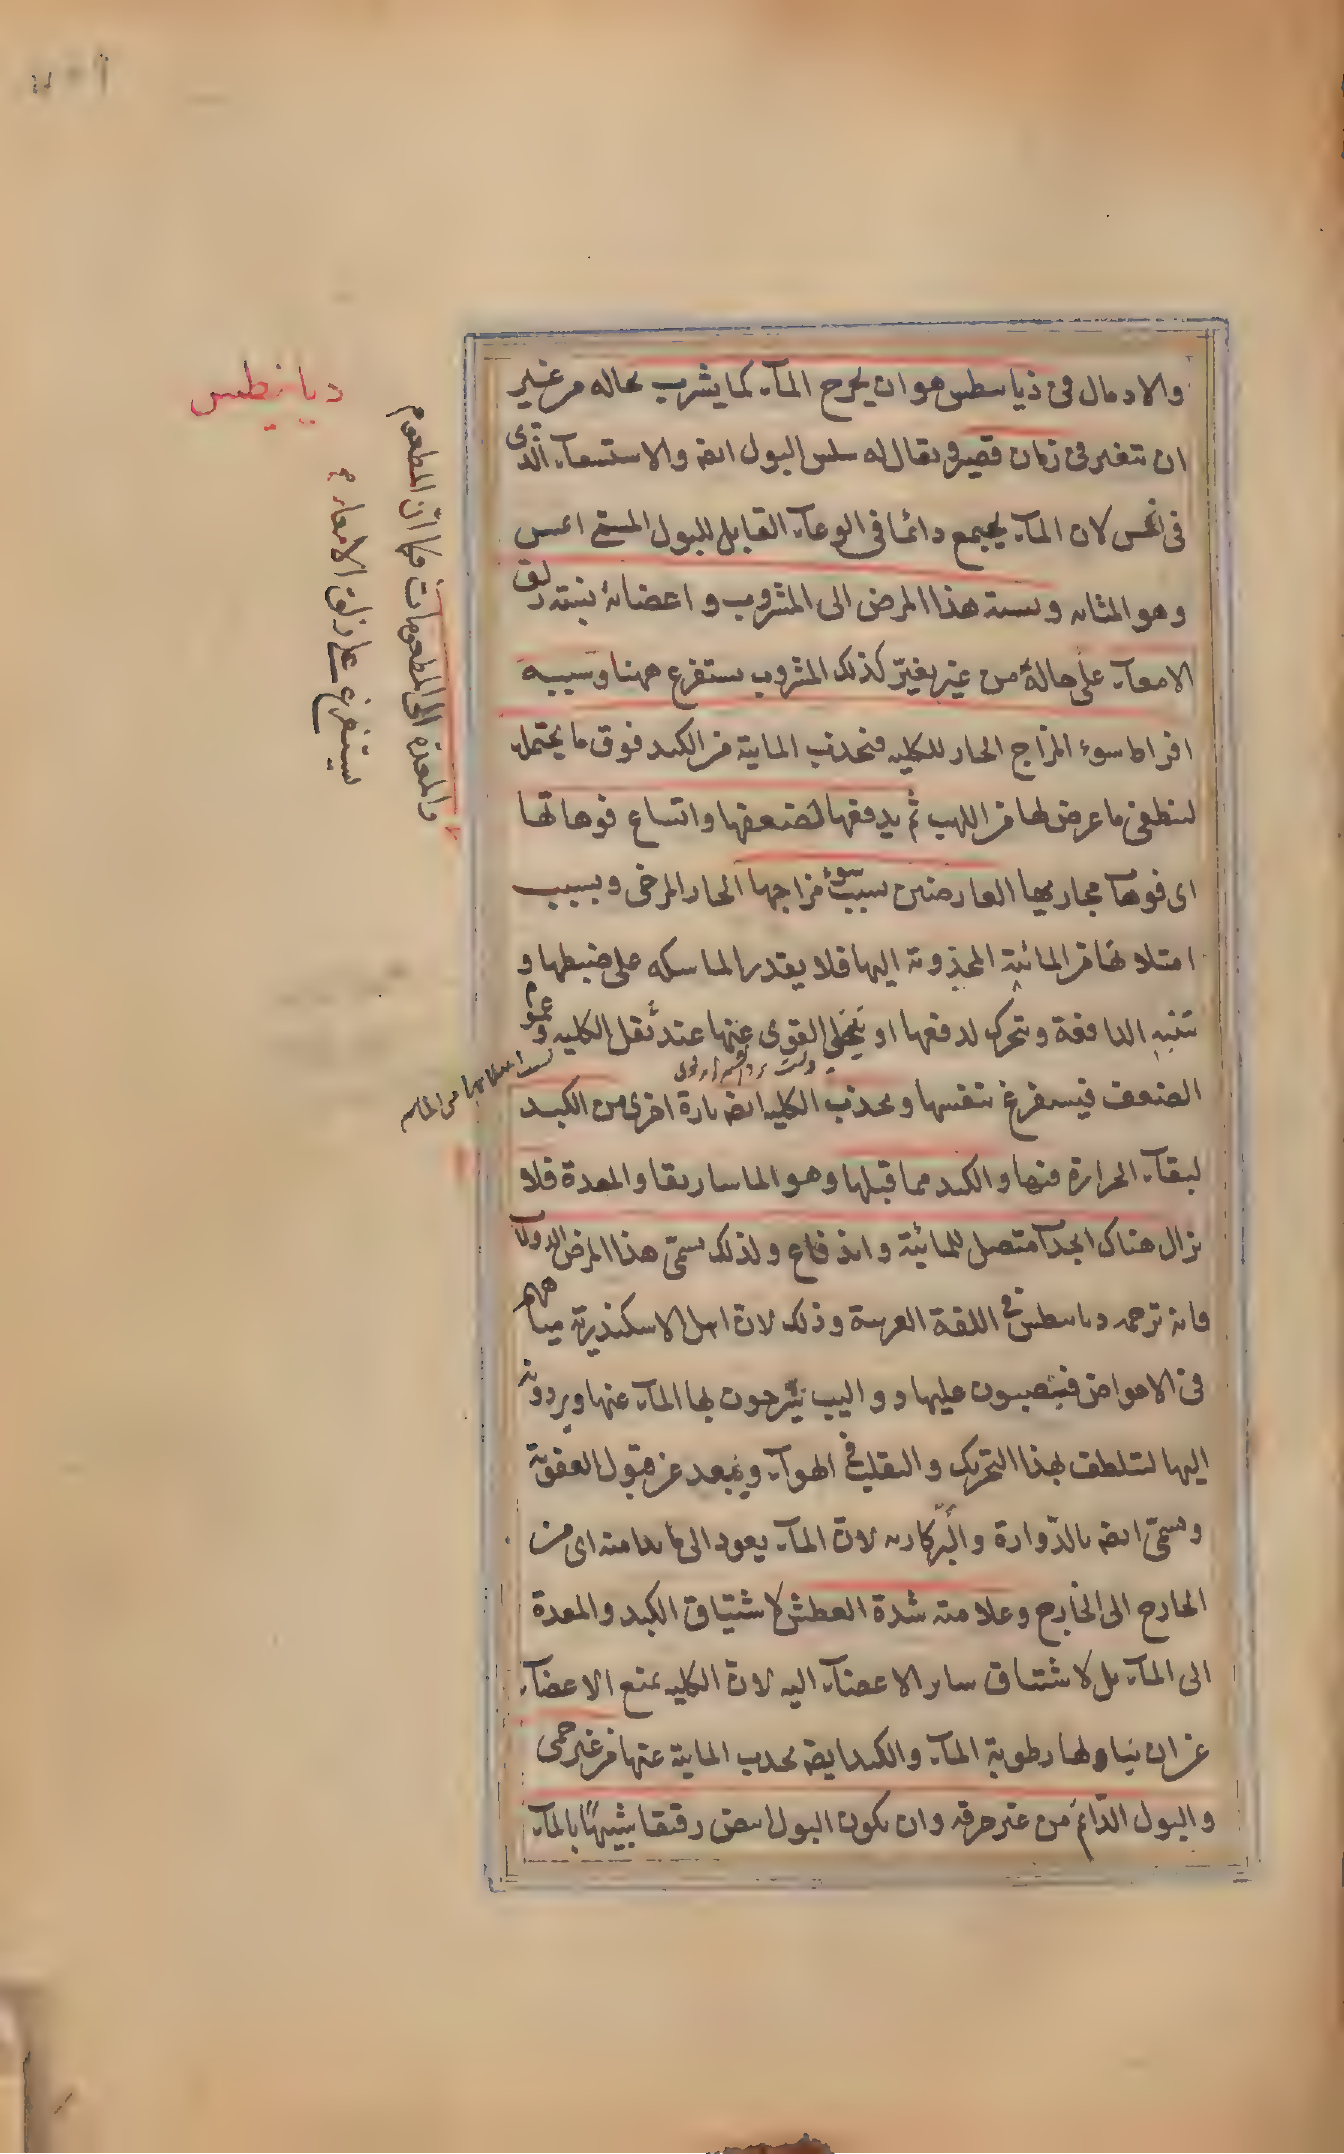 والادمال فى ذيابيطس هو ان يخرج المآء كما يشرب بحاله من غير
ان يتغير فى زمان قصير ويقال له سلس البول ايضا والاستسقآء الذى
فى لان المآء يجتمع دائما فى الوعآء القابل للبول اعنى
وهو المثانه ونسبته هذا المرض الى المشروب واعضائه نسبته زلق
الامعآء على حالة من غير تغيّر كذلك المشروب يستفرغ ههنا وسببه
افراط سوء المزاج الحار للكليه فتجذب المايية من الكبد فوق ما يحتمله
لتطفى ما عرض لها من اللهب ثم يدفعها لضعفها واتساع فوهاتها
اى فوهات مجاريها العارضين بسبب سوء مزاجها الحار المرخى وبسبب
امتلائها من المائية المجذوبة اليها فلا يقدر الماسكه على ضبطها و
تنتبه الدافعة وتتحرك لدفعها او يتخلى القوى عنها عند ثقل الكليه و
الضعف فيستفرغ بنفسها وتجذب الكليه ايضا تارة اخرى من الكبد
لبقآء الحرارة فيها والكبد مما قبلها وهو الماساريقا والمعدة فلا
يزال هناك انجذاب متصل للمائية واندفاع ولذلك يسمّى هذا المرض الدولاب
فانه ترجمه ديابيطس فى اللغة العربية وذلك لان اهل الاسكندرية مياههم
فى الاحواض فينصبون عليها دواليب ينزحون بها المآء عنها ويردونه
اليها لتلطف بهذا التحريك والتقلب فى الهوآء ويبعد عن قبول العفونة
ويسمّى ايضا بالدّوارة والبركاريه لان المآء يعود الى ما بدا منه اى من
الخارج الى الخارج وعلامته شدة العطش لاشتياق الكبد والمعدة
الى المآء بل لاشتياق ساير الاعضآء اليه لان الكليه تمنع الاعضآء
عن ان يناولها رطوبة المآء والكبد ايضا تجذب المايية عنها من غير حمى
والبول الدّائم من غير حرقه وان يكون البول ابيض رقيقا شبيهًا بالمآء
ديانيطس
والمعدة الى المطعومات فكما انّ المطعوم
يستفرغ على زلق الامعاء